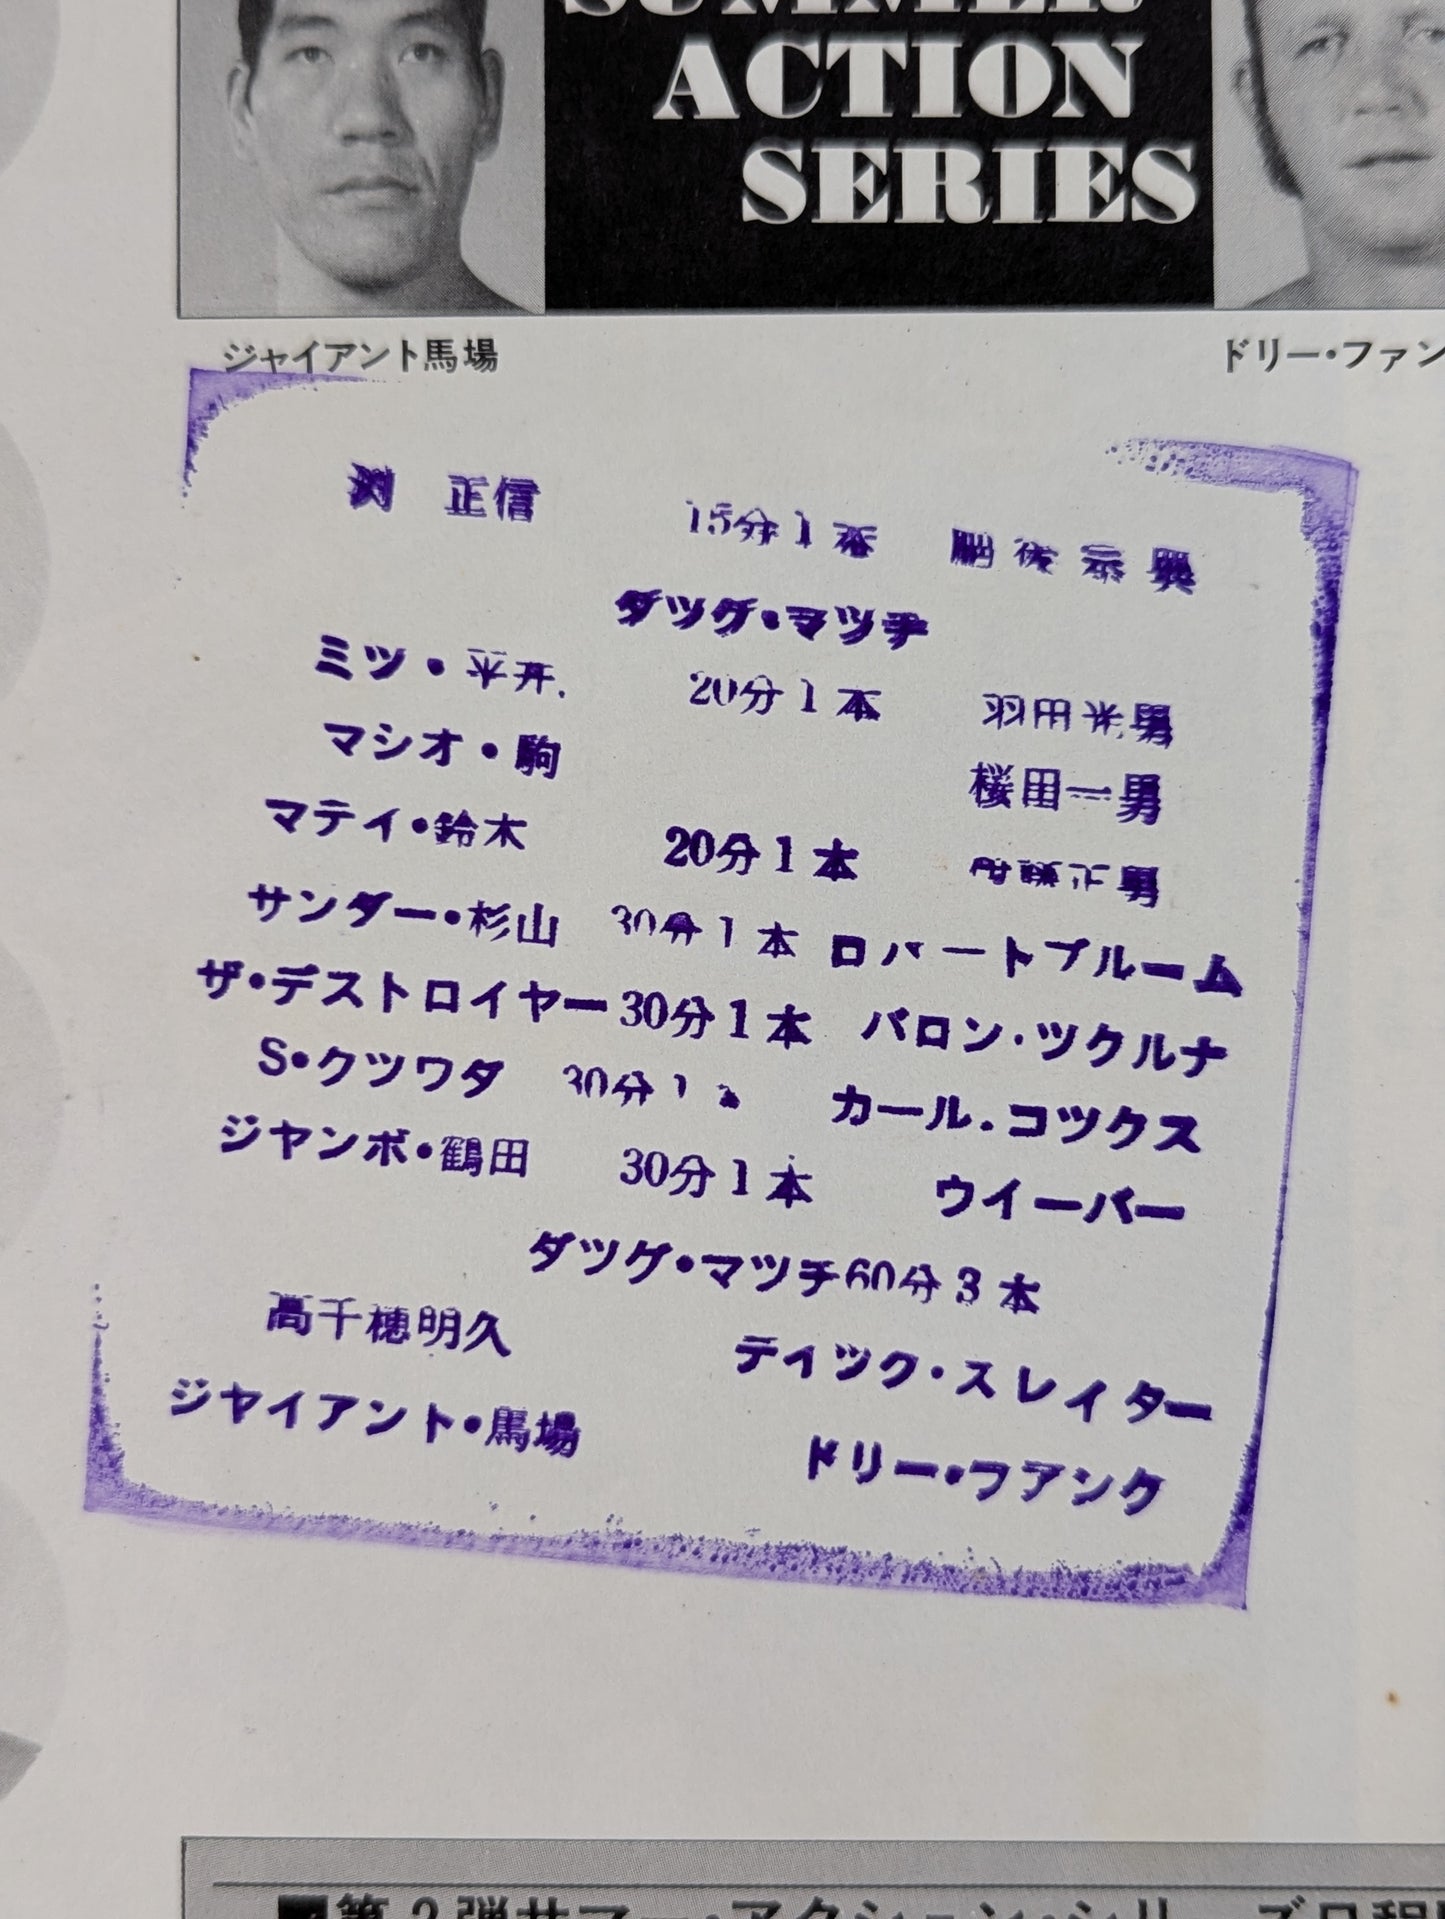 SUMMER
ACTION
SERIES
ジャイアント馬場
ドリー・ファン
渕 正信 15分1本 肥後宗典
ダツグ・マツチ
ミツ・平井 20分1本 羽田光男
マシオ・駒 桜田一男
マテイ・鈴木 20分1本 伊藤正男
サンダー・杉山 30分1本 ロバートブルーム
ザ・デストロイヤー 30分1本 バロン・ツクルナ
S・クツワダ 30分1本 カール.コツクス
ジヤンボ・鶴田 30分1本 ウイーバー
ダツグ・マツチ60分3本
高千穂明久 デイツク・スレイター
ジヤイアント・馬場 ドリー・フアンク
■第2弾サマー・アクション・シリーズ日程